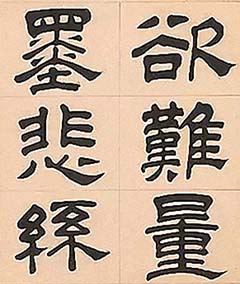 欲難量
墨悲絲